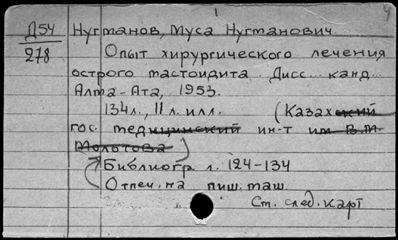 1 4
Д54 Нугманов, Муса Нугманович.
278 Опыт хирургического лечения
острого мастоидита. Дисс... канд...
Алма-Ата, 1953.
134л., 11 л. илл. (Казахский
гос. медицинский ин-т им В.М.
Молотова)
Библиогр л. 124-134
Отпеч. на пиш. маш.
Ст. след. карт